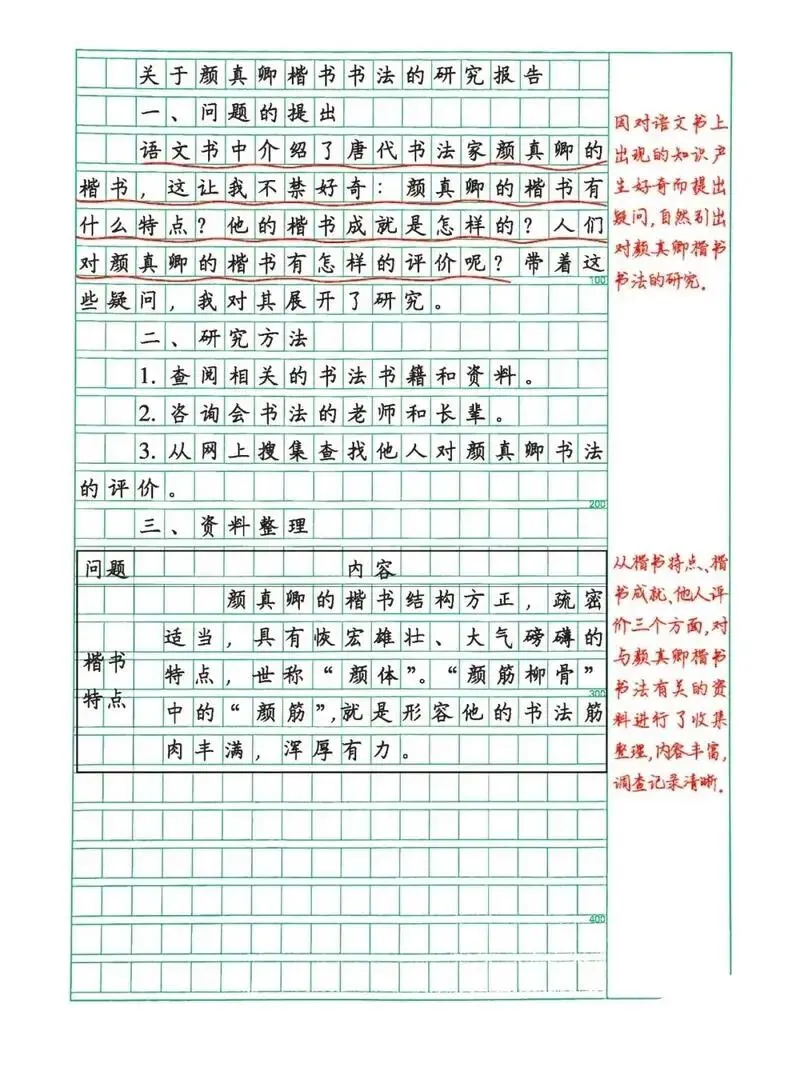 关于颜真卿楷书书法的研究报告
一、问题的提出
语文书中介绍了唐代书法家颜真卿的
楷书，这让我不禁好奇：颜真卿的楷书有
什么特点？他的楷书成就是怎样的？人们
对颜真卿的楷书有怎样的评价呢？带着这
100
些疑问，我对其展开了研究。
二、研究方法
1. 查阅相关的书法书籍和资料。
2. 咨询会书法的老师和长辈。
3. 从网上搜集查找他人对颜真卿书法
的评价。
200
三、资料整理
问题 内容
楷书
特点
颜真卿的楷书结构方正，疏密
适当，具有恢宏雄壮、大气磅礴的
特点，世称“颜体”。“颜筋柳骨”
300
中的“颜筋”，就是形容他的书法筋
肉丰满，浑厚有力。
400
因对语文书上
出现的知识产
生好奇而提出
疑问，自然引出
对颜真卿楷书
书法的研究。
从楷书特点、楷
书成就、他人评
价三个方面，对
与颜真卿楷书
书法有关的资
料进行了收集
整理，内容丰富，
调查记录清晰。